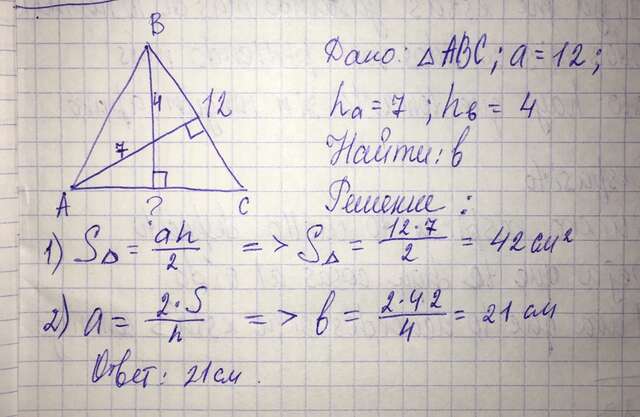 B
4
12
7
A
?
C
Дано: △ABC; a = 12;
hₐ = 7 ; hв = 4
Найти: в
Решение :
1) S△ = ah/2 => S△ = 12·7/2 = 42 см²
2) a = 2·S/h => в = 2·42/4 = 21 см
Ответ: 21 см.